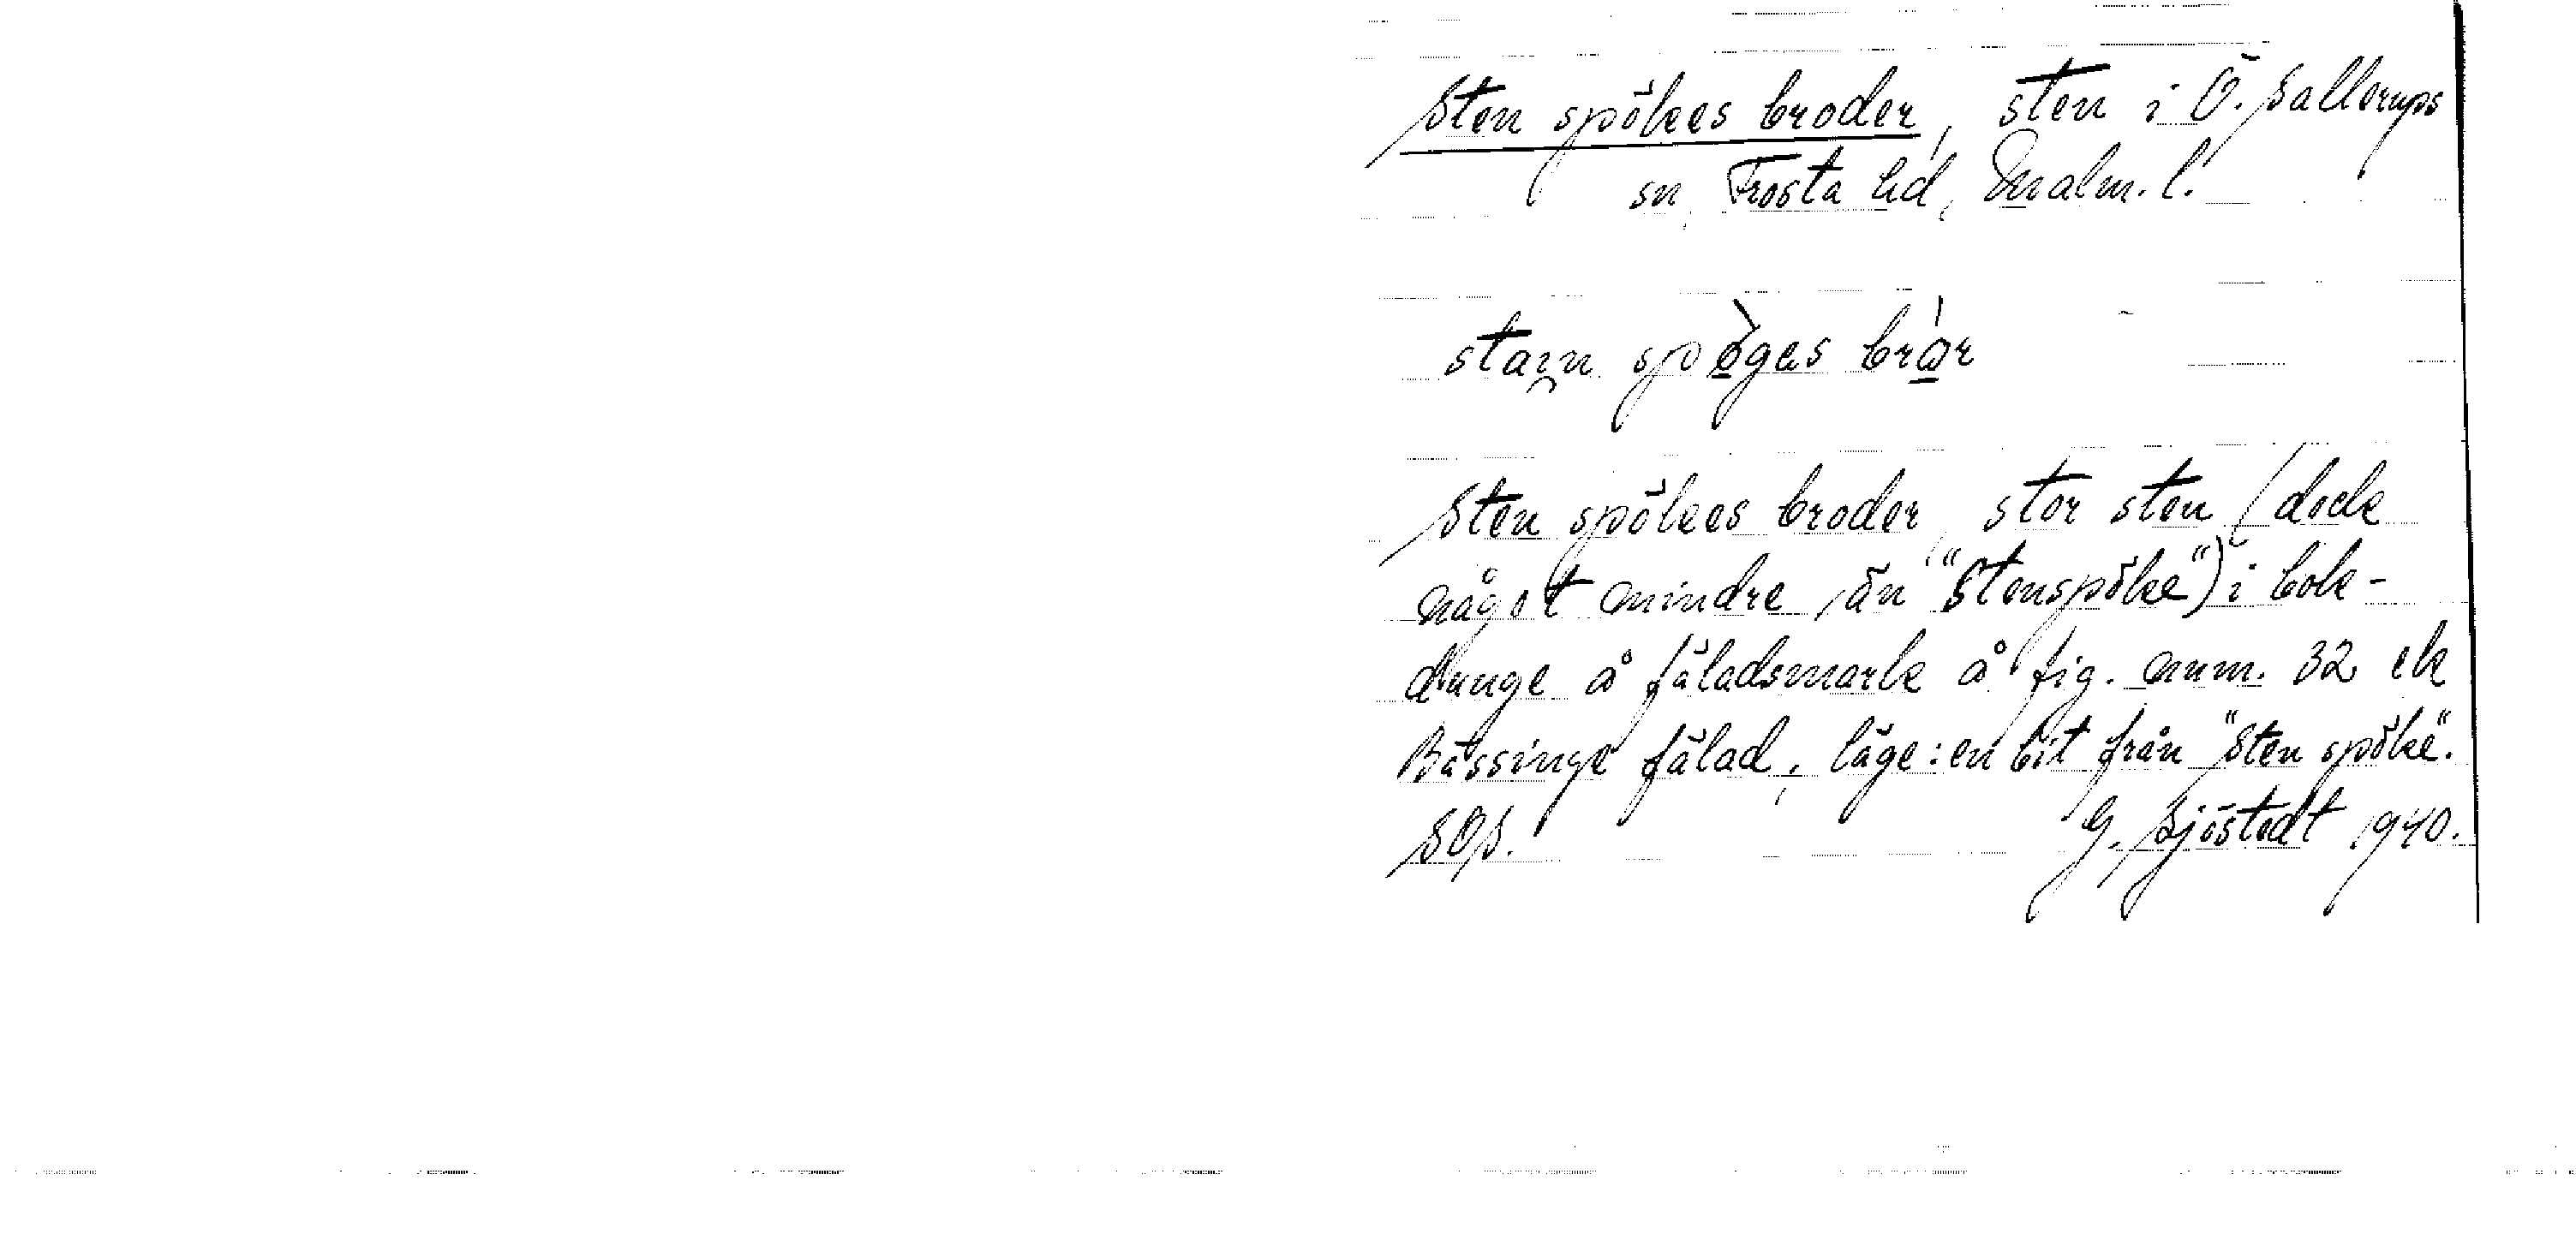 Sten spökes broder, sten i Ö. Sallerups
sn, Frosta hd, Malm. l.
stai̯n spø̀gas brór
Sten spökes broder, stor sten (dock
något mindre än "Stenspöke") i bok-
dunge å fäladsmark å fig. num. 32 ek
Bässinge fälad, läge: en bit från "Sten spöke".
SOS. G. Sjöstedt 1940.